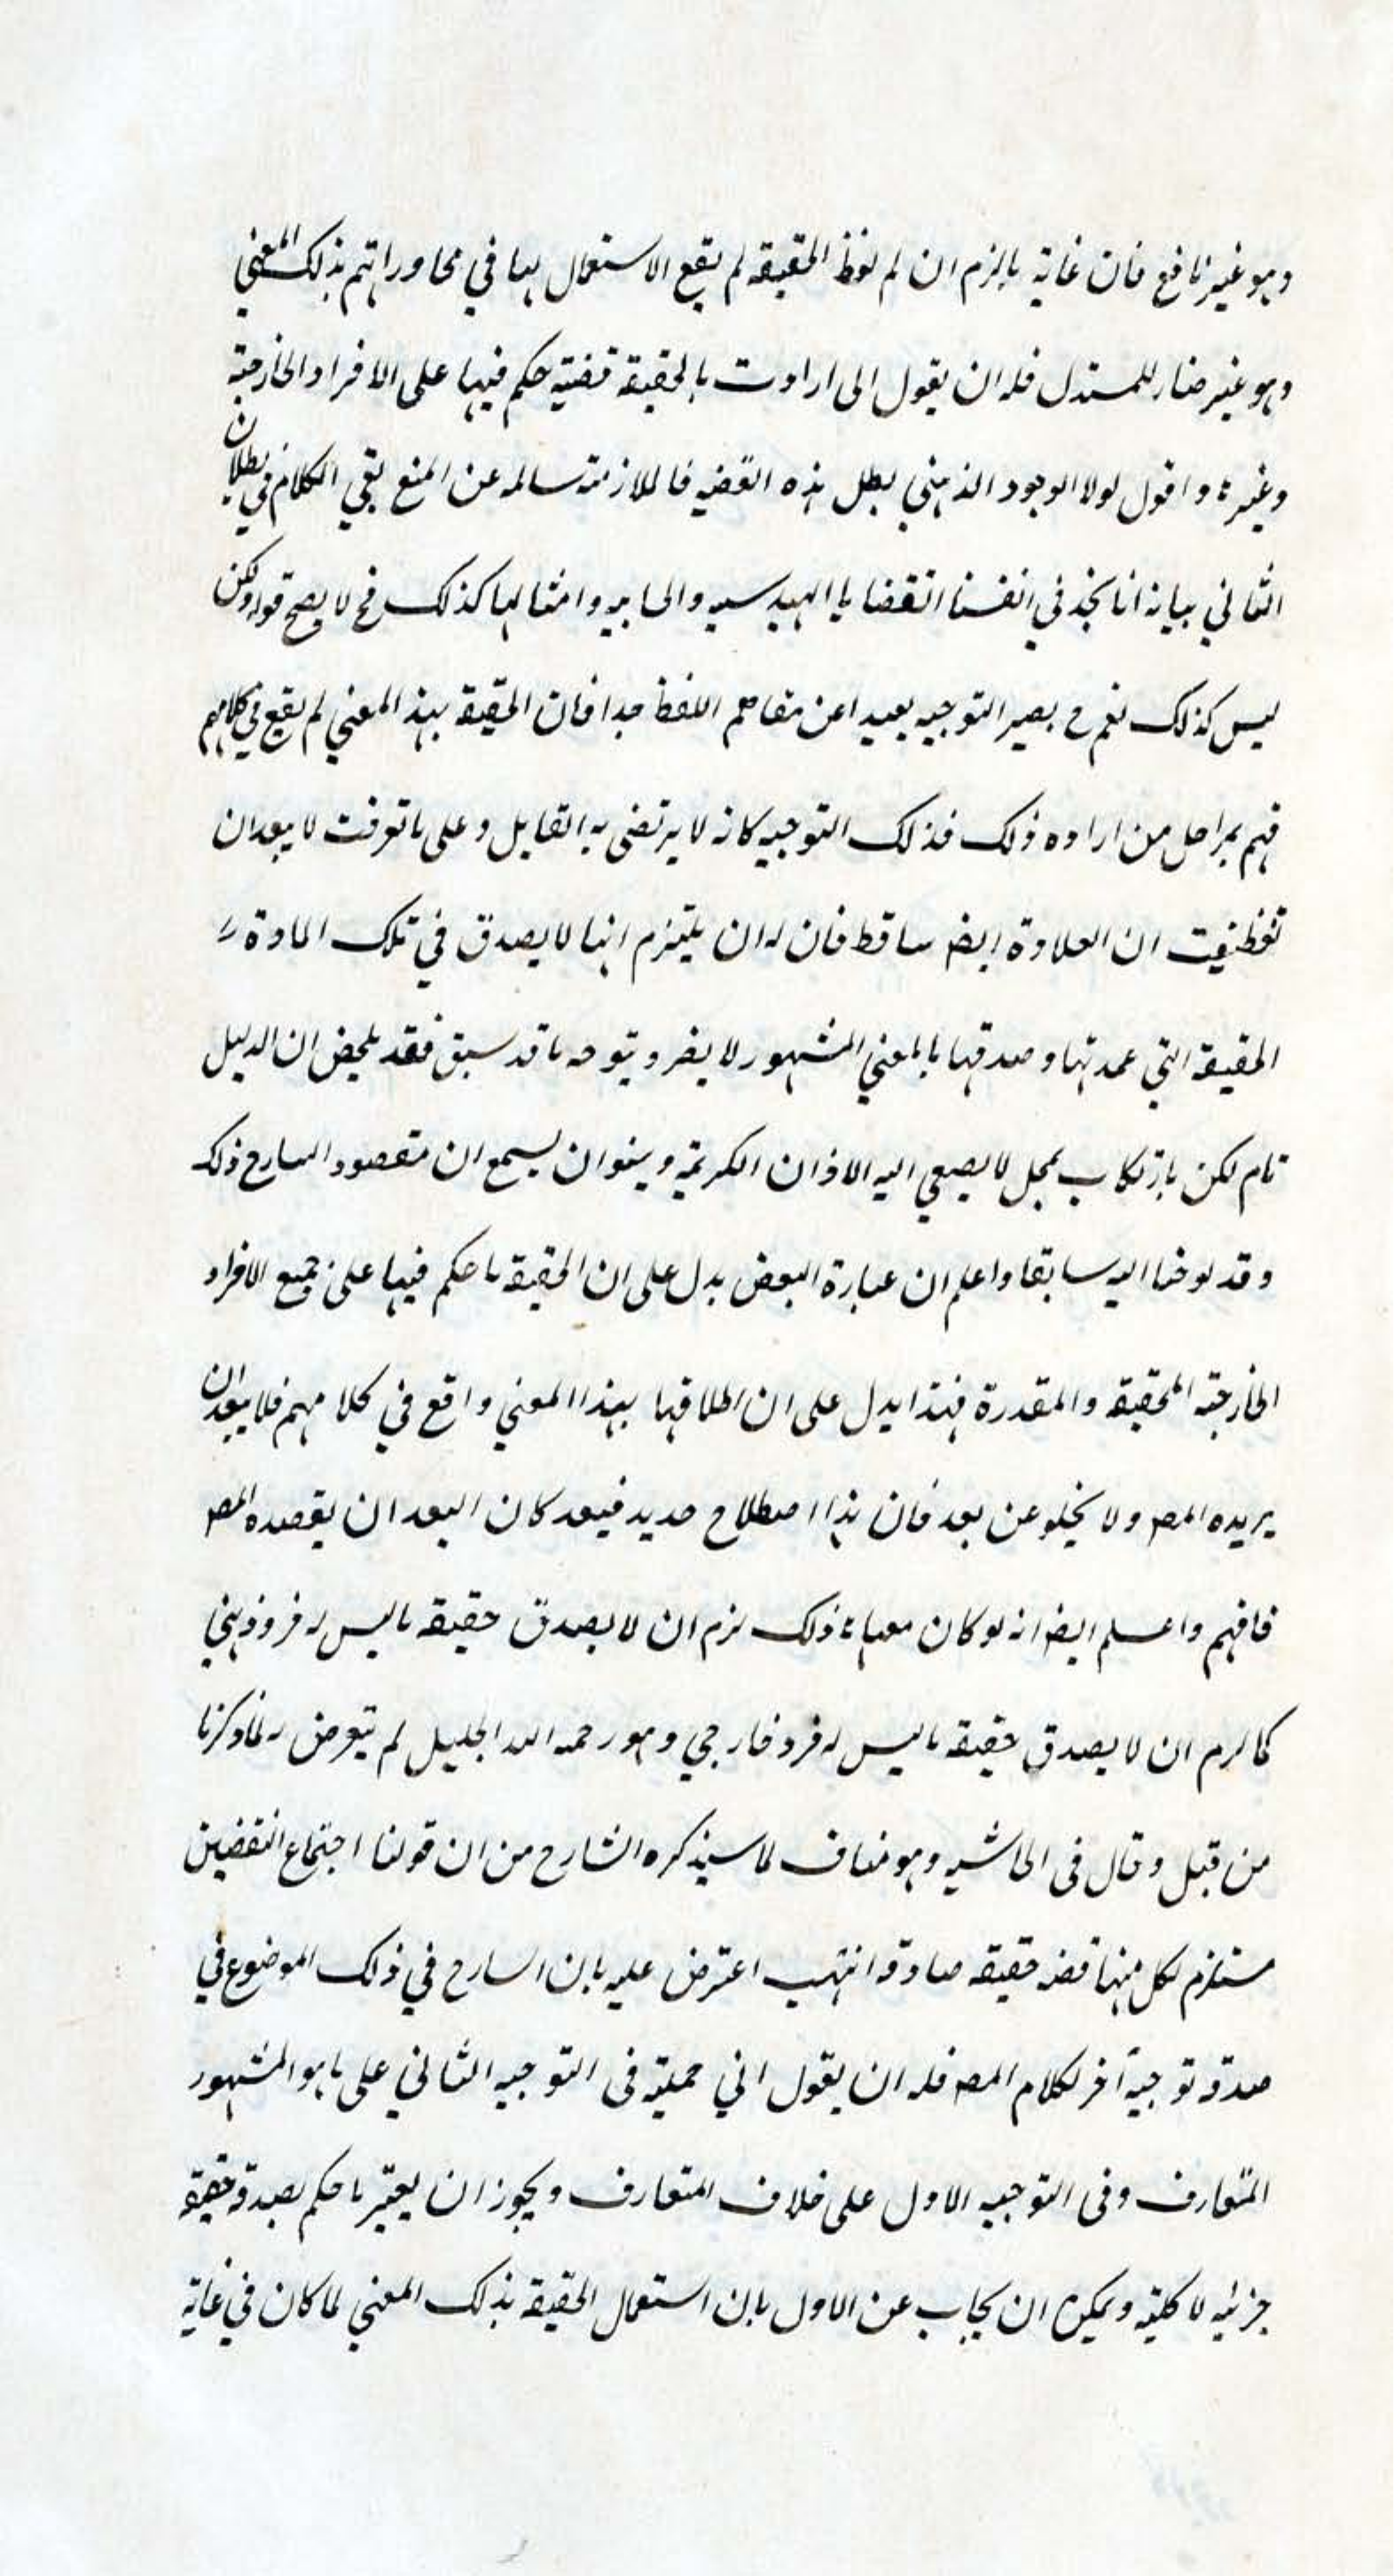 وهو غير نافع فان غاية ما لزم ان لم لفظ الحقيقة لم يقع الاستعمال بها في محاوراتهم بذلك المعني
وهو غير ضار للمستدل فله ان يقول انى اردت بالحقيقة قضية حكم فيها على الافراد الخارجية
وغيرها و اقول لولا الوجود الذهني لبطل هذه القضية فالملازمة سالمه عن المنع بقي الكلام في بطلان
الثاني بيانه انا نجد في انفسنا القضايا الهندسيه والحسابيه وامثالها كذلك فح لا يصح قوله ولكن
ليس كذلك نعم ح يصير التوجيه بعيدا عن اللفظ جدا فان الحقيقة بهذا المعني لم يقع في كلامهم
فهم بمراحل من اراده ذلك فذلك التوجيه كانه لا يرتضى به القايل وعلى ما تعرفت لا يبعد ان
تفطنت ان العلاوة ايضا ساقط فان له ان يلتزم انها لا يصدق في تلك المادة
الحقيقة التي عمدتها وصدقها بالمعني المشهور لا يضر و يتوجه ما قد سبق فقد تلخص ان الدليل
تام لكن بارتكاب محمل لا يصغي اليه الاذان الكريمة وينبو ان يسمع ان مقصود الشارح ذلك
وقد لوحنا اليه سابقا واعلم ان عبارة البعض يدل على ان الحقيقة ما حكم فيها على جميع الافراد
الخارجية المحققة والمقدرة فهذا يدل على ان اطلاقها بهذا المعني واقع في كلامهم فلا يبعد ان
يريده المصـ ولا يخلو عن بعد فان هذا اصطلاح جديد فيبعد كان البعد ان يقصده المصـ
فافهم واعلم ايضا انه لو كان معناه ذلك لزم ان لا يصدق حقيقة ما ليس له فرد ذهني
كما لزم ان لا يصدق حقيقة ما ليس له فرد خارجي وهو رحمه الله الجليل لم يتعرض له لما ذكرنا
من قبل وقال فى الحاشيه وهو مناف لما سيذكره الشارح من ان قولنا اجتماع النقضين
مستلزم لكل منهما قضيه حقيقه صادقه انتهى اعترض عليه بان الشارح في ذلك الموضوع في
صدد توجيه آخر لكلام المصـ فله ان يقول اني حملته فى التوجيه الثاني على ما هو المشهور
المتعارف وفى التوجيه الاول على خلاف المتعارف و يجوز ان يعتبر ما حكم بصدقه حقيقة
جزئيه لا كلية ويمكن ان يجاب عن الاول بان استعمال الحقيقة بذلك المعني لما كان في غاية